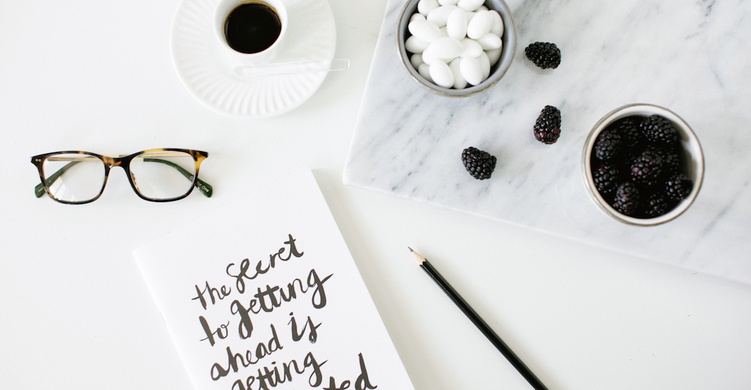 the secret
to getting
ahead is
getting
ted